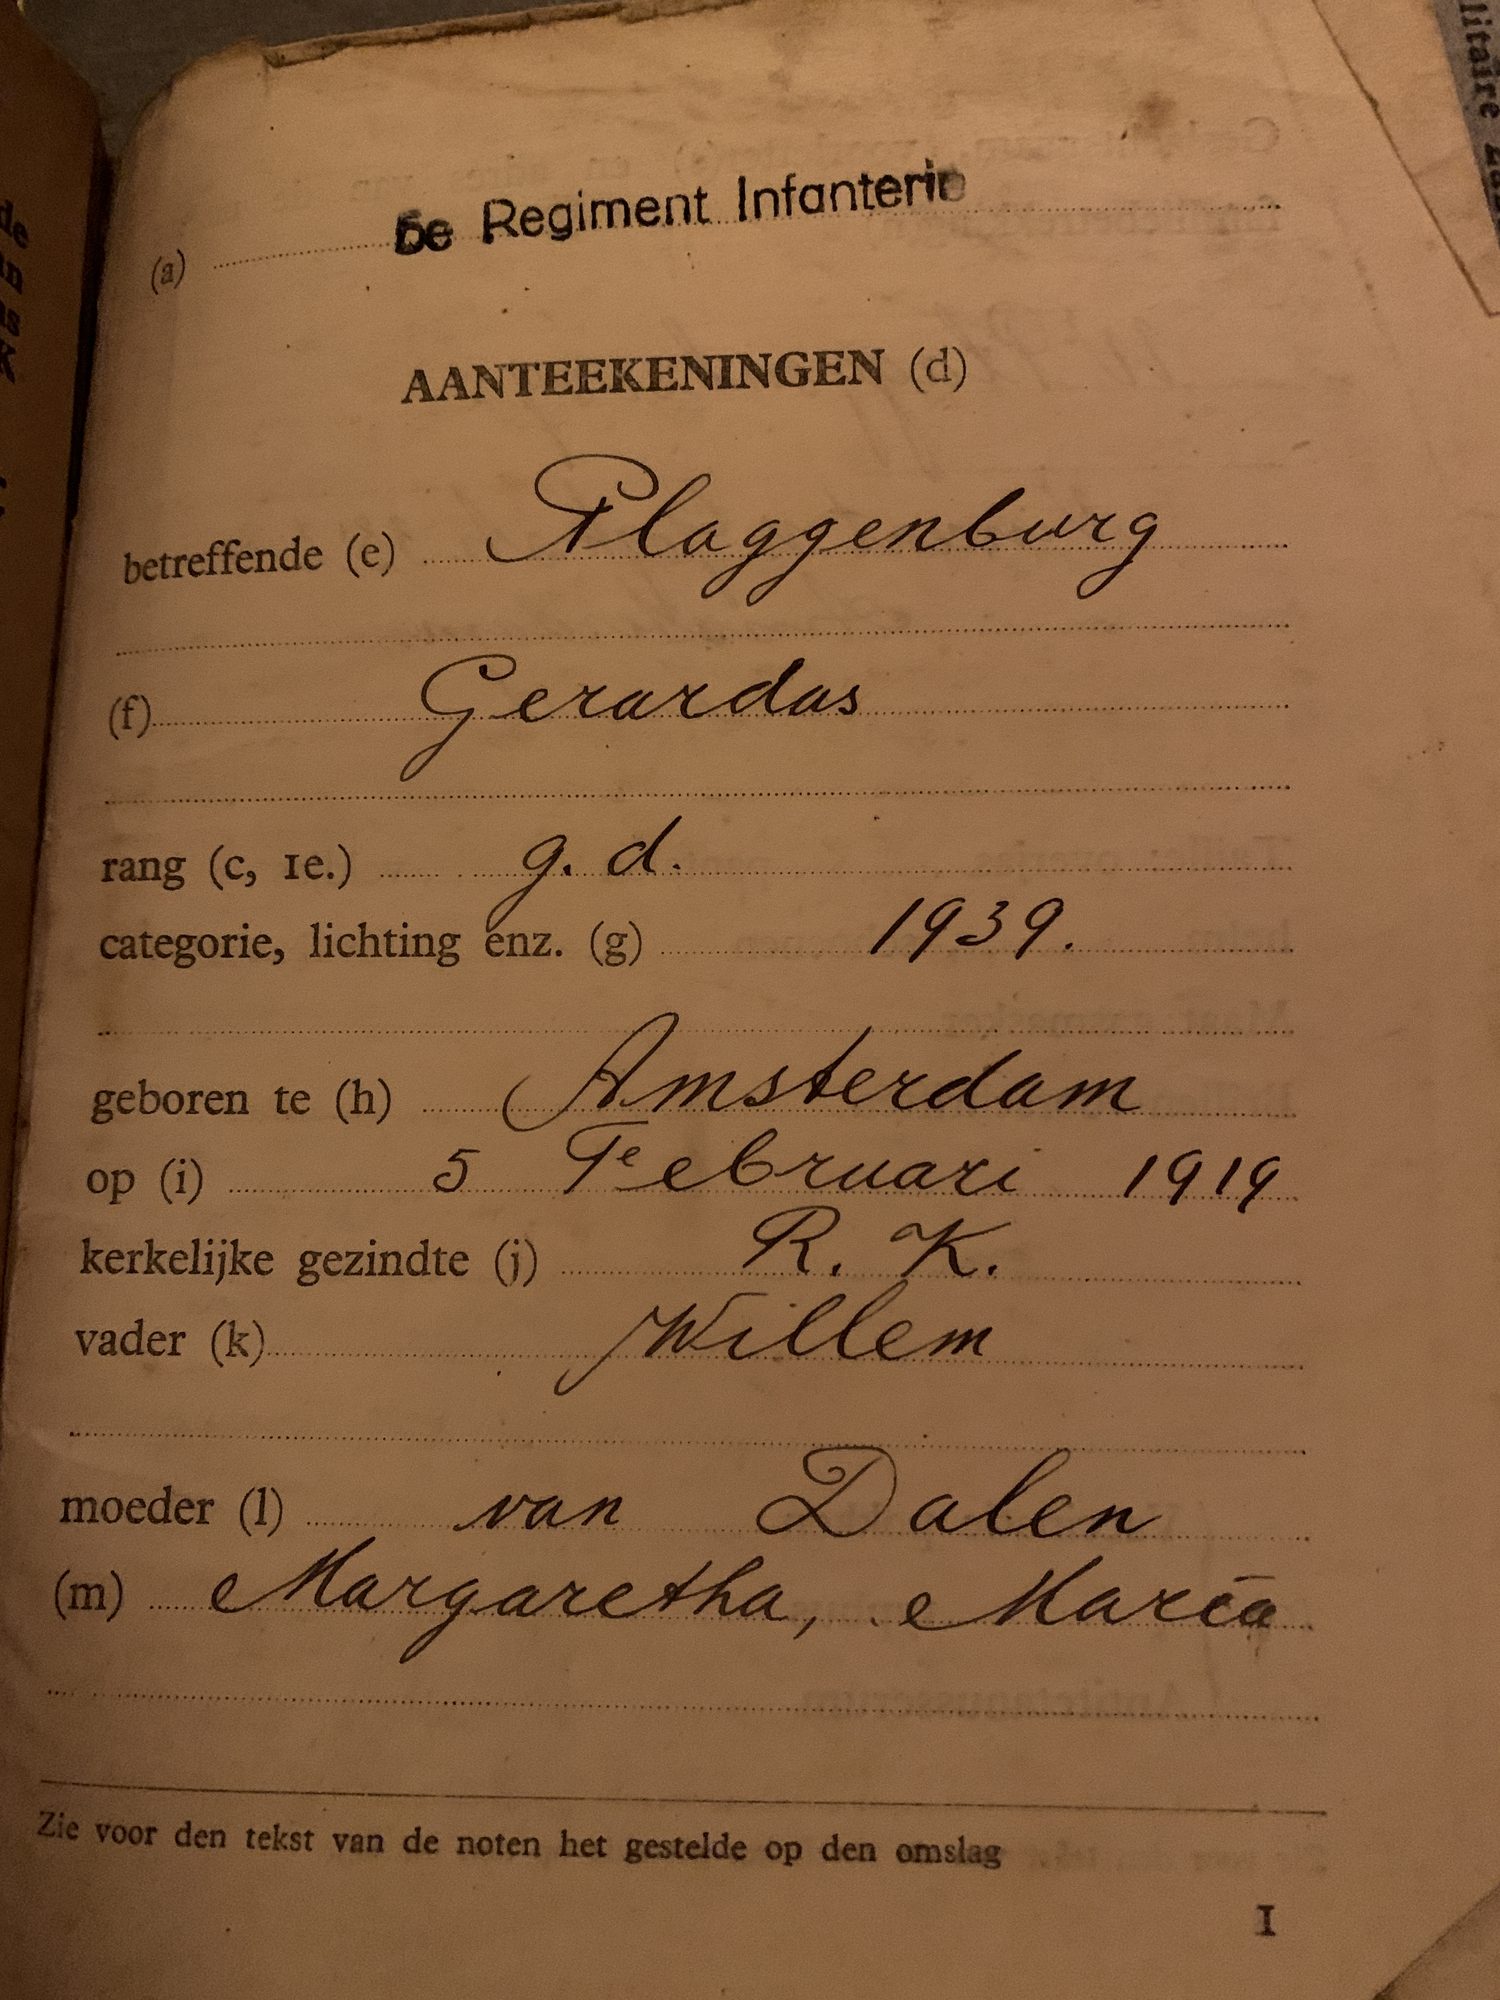 5e Regiment Infanterie
(a)
AANTEEKENINGEN (d)
betreffende (e) Plaggenburg
(f) Gerardus
rang (c, 1e.) g. d.
categorie, lichting enz. (g) 1939.
geboren te (h) Amsterdam
op (i) 5 Februari 1919
kerkelijke gezindte (j) R. K.
vader (k) Willem
moeder (l) van Dalen
(m) Margaretha, Maria
Zie voor den tekst van de noten het gestelde op den omslag
1